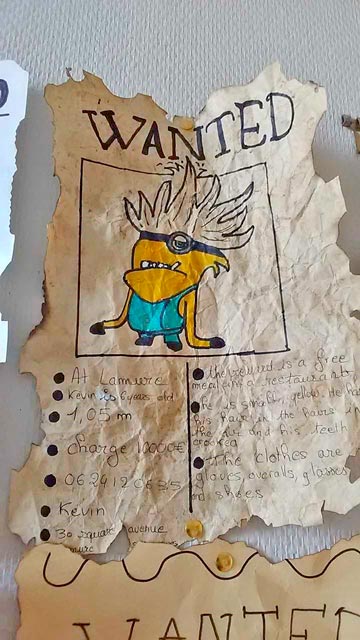 WANTED
At Lamure
Kevin is 6 years old
1,05 m
Charge 10000€
Kevin
30 square avenue
the reward is a free
meal in a restaurant
he is small, yellow. He has
his hair in the hairs in
the air and his teeth
crooked
The clothes are
gloves, overalls, glasses
and shoes
WANTED